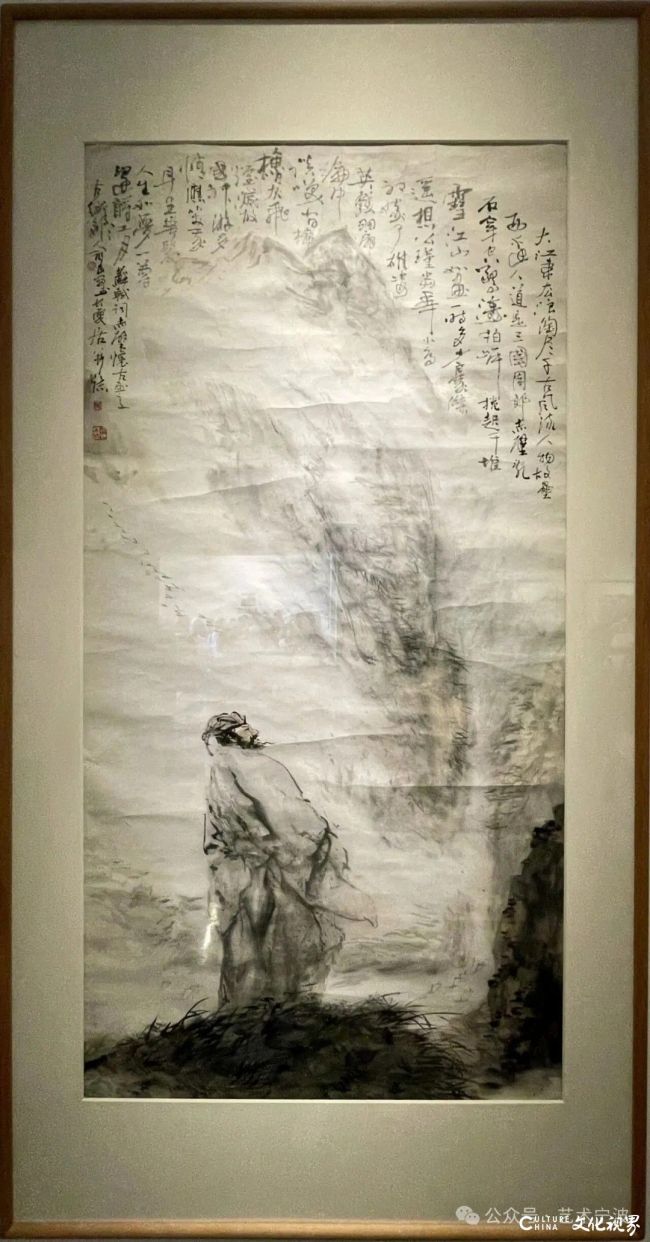 大江東去浪淘尽千古風流人物故壘
西邊人道是三國周郎赤壁乱
石穿空驚濤拍岸捲起千堆
雪江山如畫一時多少豪傑
遥想公瑾當年小喬
初嫁了雄姿
英發羽扇
綸巾
談笑間檣
櫓灰飛
煙滅故
國神游多
情應笑我
早生華髮
人生如夢一尊
還酹江月 蘇軾詞赤壁懷古
公众号 · 艺术宁波
CULTURE CHINA 文化视界